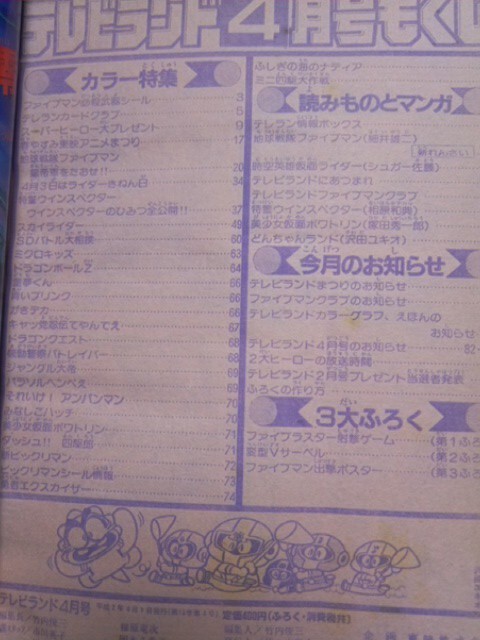 テレビランド4月号もくじ
カラー特集
ファイブマン シール 3
テレランカードクラブ 5
スーパーヒーロー大プレゼント 9
東映アニメまつり 17
地球戦隊ファイブマン
20
4月3日はライダーきねん日 34
特警ウインスペクター
ウインスペクターのひみつ全公開!! 37
スカイライダー 49
SDバトル大相撲 60
ミクロキッズ 63
ドラゴンボールZ 64
悪夢くん 66
青いブリンク 66
がきデカ 66
キャッ党忍伝てやんでえ 67
ドラゴンクエスト 68
機動警察パトレイバー 68
ジャングル大帝 69
パラソルヘンべえ 69
それいけ!アンパンマン 70
みなしごハッチ 70
美少女仮面ポワトリン 71
ダッシュ!!四駆郎 71
新ビックリマン 72
ビックリマンシール情報 73
勇者エクスカイザー 74
ふしぎの海のナディア
ミニ四駆大作戦
読みものとマンガ
テレラン情報ボックス
地球戦隊ファイブマン(細井雄二)
新れんさい
時空英雄仮面ライダー(シュガー佐藤)
テレビランドにあつまれ
テレビランドファイブマンクラブ
特警ウインスペクター(相原和典)
美少女仮面ポワトリン
どんちゃんランド(沢田ユキオ)
今月のお知らせ
テレビランドまつりのお知らせ
ファイブマンクラブのお知らせ
テレビランドカラーグラフ、えほんの
お知らせ
テレビランド4月号のお知らせ 82
2大ヒーローの放送時間
テレビランド2月号プレゼント当選者発表
ふろくの作り方
3大ふろく
ファイブラスター射撃ゲーム (第1ふろ
変型Vサーベル (第2ふろ
ファイブマン出撃ポスター (第3ふろ
テレビランド4月号
定価400円(ふろく・消費税共)